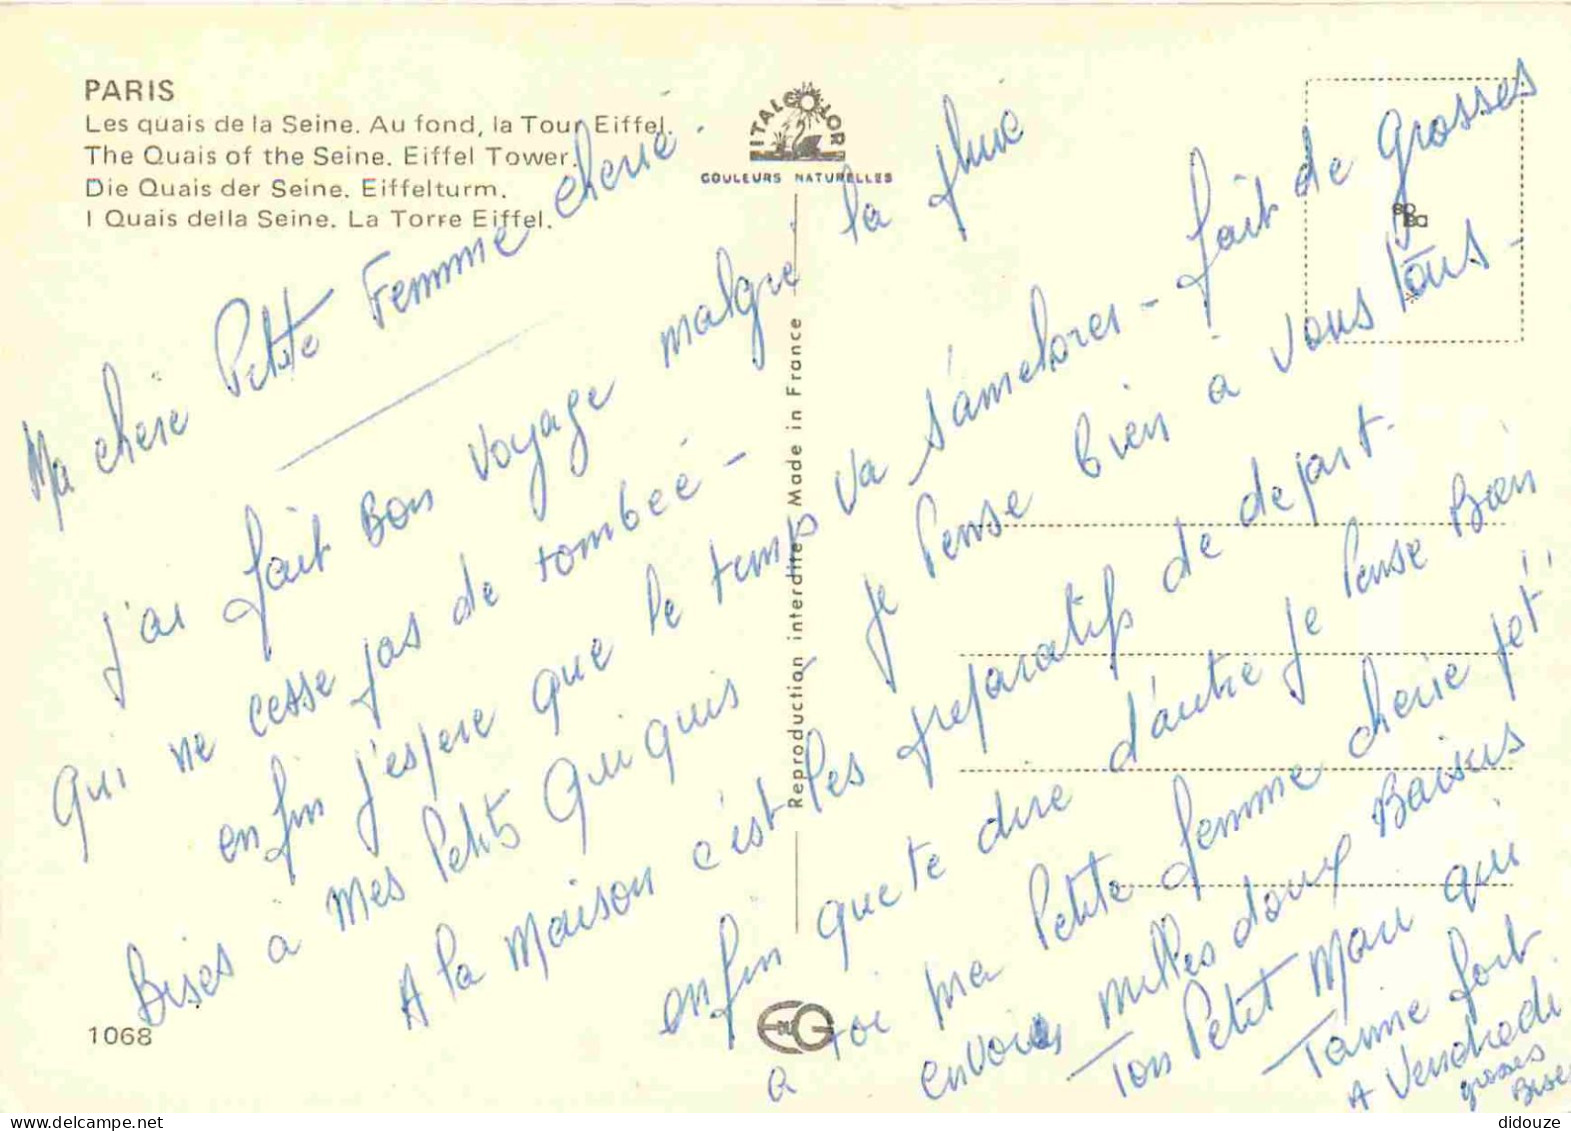 PARIS
Les quais de la Seine. Au fond, la Tour Eiffel.
The Quais of the Seine. Eiffel Tower.
Die Quais der Seine. Eiffelturm.
I Quais della Seine. La Torre Eiffel.
ITALCOLOR
COULEURS NATURELLES
Reproduction interdite Made in France
Ma chère Petite Femme cherie.
J'ai fait Bon voyage malgré la pluie
qui ne cesse pas de tombeé -
enfin j'espere que le temps va s'ameliorer - fait de grosses
Bises à mes Petits quiquis je Pense bien à vous tous -
A la maison c'est les preparatifs de depart.
enfin que te dire d'autre je Pense Bien
a toi ma Petite femme cherie jet'
envoies milles doux Baisers
Ton Petit Mari qui
T'aime fort
A Vendredi
grosses
Bises
1068
didouze